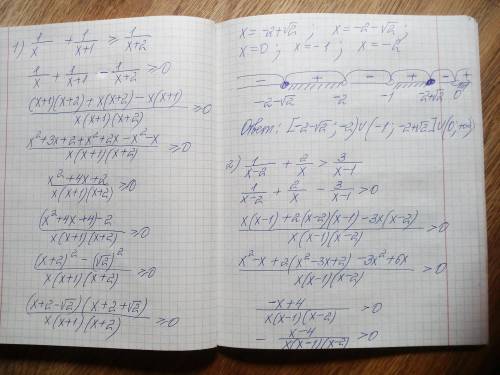 1) 1/x + 1/(x+1) ≥ 1/(x+2)
1/x + 1/(x+1) - 1/(x+2) ≥ 0
((x+1)(x+2) + x(x+2) - x(x+1))/(x(x+1)(x+2)) ≥ 0
(x²+3x+2+x²+2x-x²-x)/(x(x+1)(x+2)) ≥ 0
(x²+4x+2)/(x(x+1)(x+2)) ≥ 0
((x²+4x+4)-2)/(x(x+1)(x+2)) ≥ 0
((x+2)²-(√2)²)/(x(x+1)(x+2)) ≥ 0
((x+2-√2)(x+2+√2))/(x(x+1)(x+2)) ≥ 0
x = -2+√2 ; x = -2-√2 ;
x=0 ; x=-1 ; x=-2
- + - + - +
-2-√2 -2 -1 -2+√2 0
Ответ: [-2-√2; -2)∪(-1; -2+√2]∪(0; +∞)
2) 1/(x-2) + 2/x > 3/(x-1)
1/(x-2) + 2/x - 3/(x-1) > 0
(x(x-1)+2(x-2)(x-1)-3x(x-2))/(x(x-1)(x-2)) > 0
(x²-x+2(x²-3x+2)-3x²+6x)/(x(x-1)(x-2)) > 0
(-x+4)/(x(x-1)(x-2)) > 0
- (x-4)/(x(x-1)(x-2)) > 0